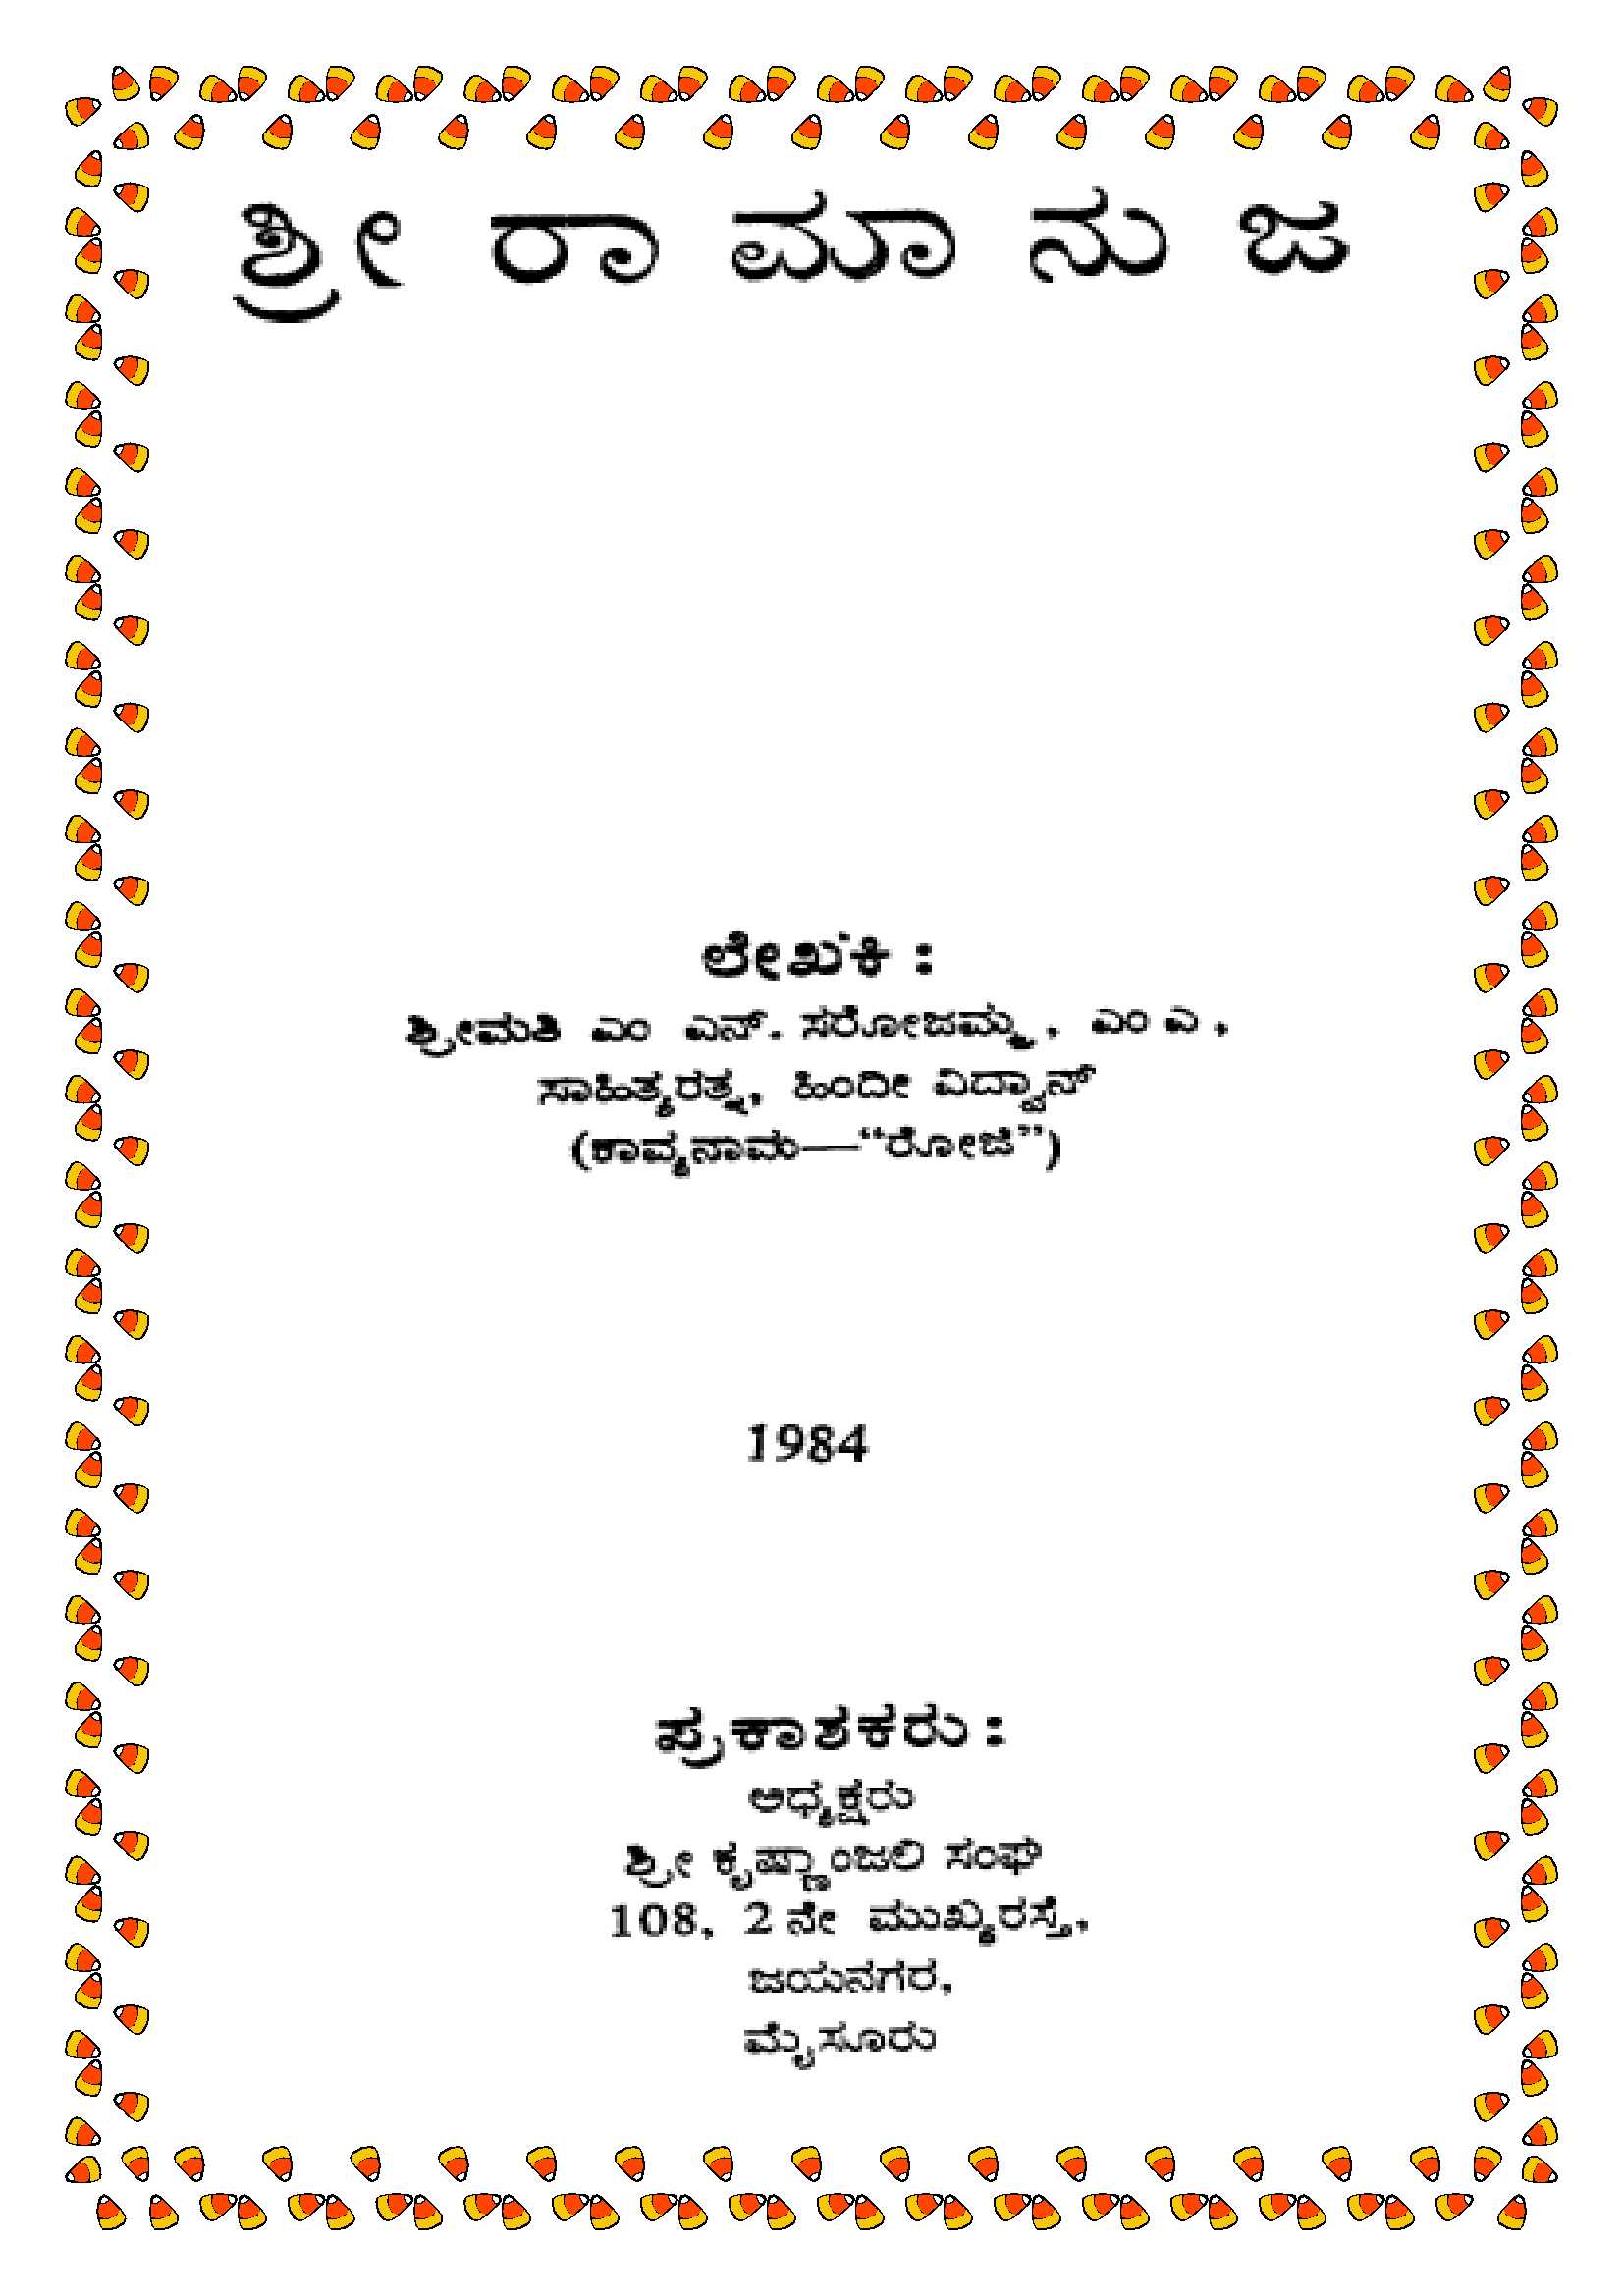 ಶ್ರೀ ರಾಮಾನುಜ
ಲೇಖಕಿ :
ಶ್ರೀಮತಿ ಎಂ ಎನ್. ಸರೋಜಮ್ಮ, ಎಂ ಎ,
ಸಾಹಿತ್ಯರತ್ನ, ಹಿಂದೀ ವಿದ್ವಾನ್
(ಕಾವ್ಯನಾಮ—“ರೋಜಿ”)
1984
ಪ್ರಕಾಶಕರು :
ಅಧ್ಯಕ್ಷರು
ಶ್ರೀ ಕೃಷ್ಣಾಂಜಲಿ ಸಂಘ
108, 2 ನೇ ಮುಖ್ಯರಸ್ತೆ,
ಜಯನಗರ,
ಮೈಸೂರು